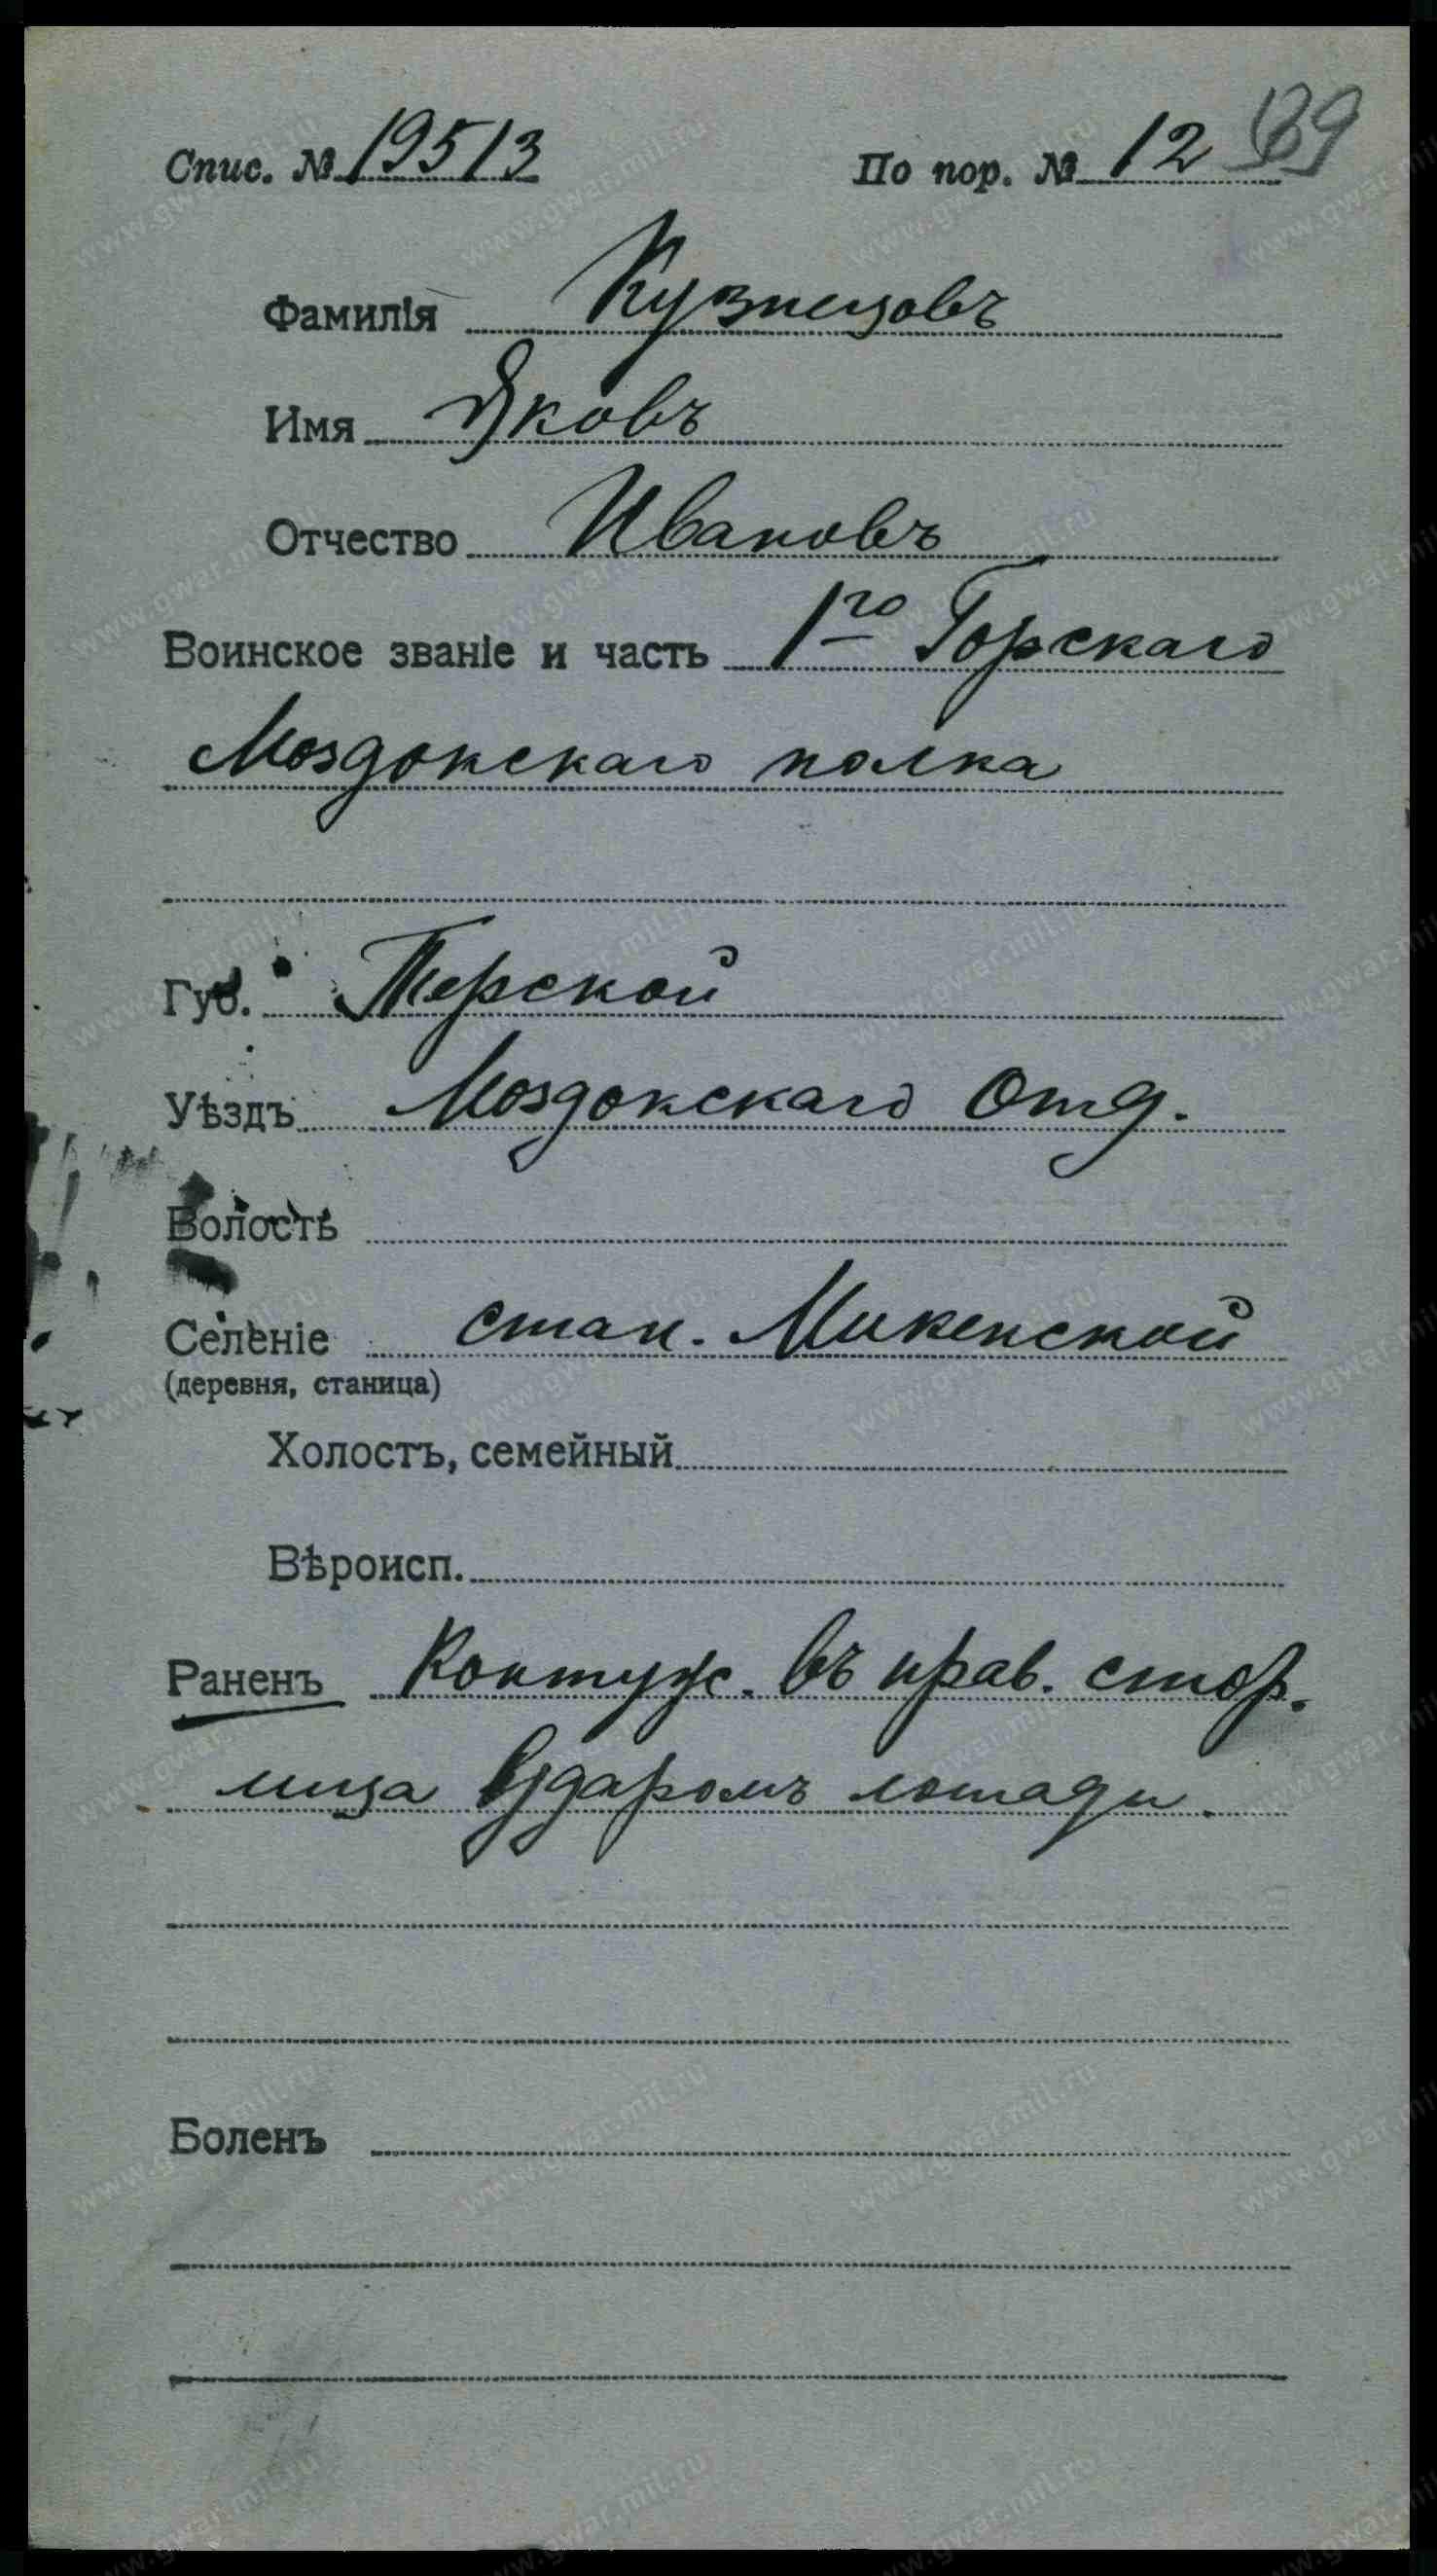 Спис. № 19513 По пор. № 12 139
Фамилія Кузнецовъ
Имя Яковъ
Отчество Ивановъ
Воинское званіе и часть 1го Горскаго
Моздокскаго полка
Губ. Терской
Уѣздъ Моздокскаго Отд.
Волость
Селеніе стан. Микенской
(деревня, станица)
Холостъ, семейный
Вѣроисп.
Раненъ Контуж. въ прав. стор.
лица Ударомъ лошади.
Боленъ